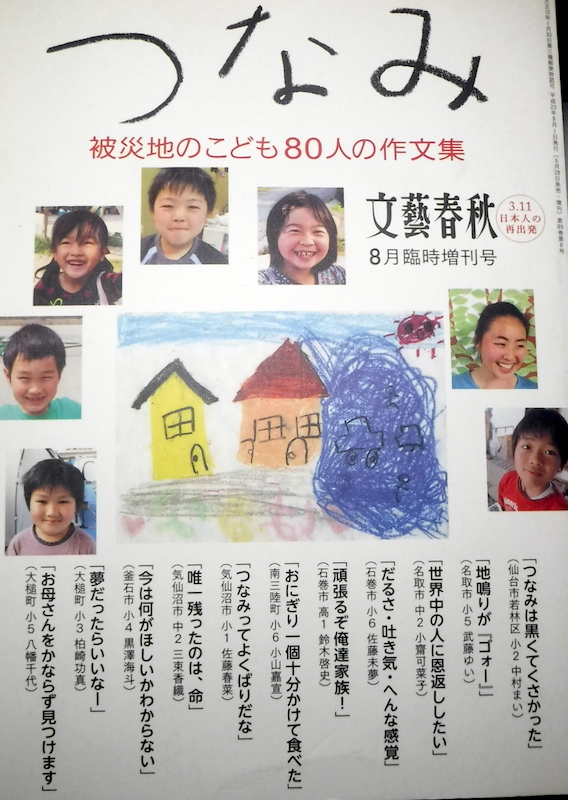 つなみ
被災地のこども80人の作文集
文藝春秋
8月臨時増刊号
3.11
日本人の
再出発
「つなみは黒くてくさかった」
(仙台市若林区 小2 中村まい)
「地鳴りが『ゴォー』」
(名取市 小5 武藤ゆい)
「世界中の人に恩返ししたい」
(名取市 中2 小齋可菜子)
「だるさ・吐き気・へんな感覚」
(石巻市 小6 佐藤未夢)
「頑張るぞ俺達家族!」
(石巻市 高1 鈴木啓史)
「おにぎり一個十分かけて食べた」
(南三陸町 小6 小山嘉宣)
「つなみってよくばりだな」
(気仙沼市 小1 佐藤春菜)
「唯一残ったのは、命」
(気仙沼市 中2 三東香織)
「今は何がほしいかわからない」
(釜石市 小4 黒澤海斗)
「夢だったらいいなー」
(大槌町 小3 柏崎功真)
「お母さんをかならず見つけます」
(大槌町 小5 八幡千代)